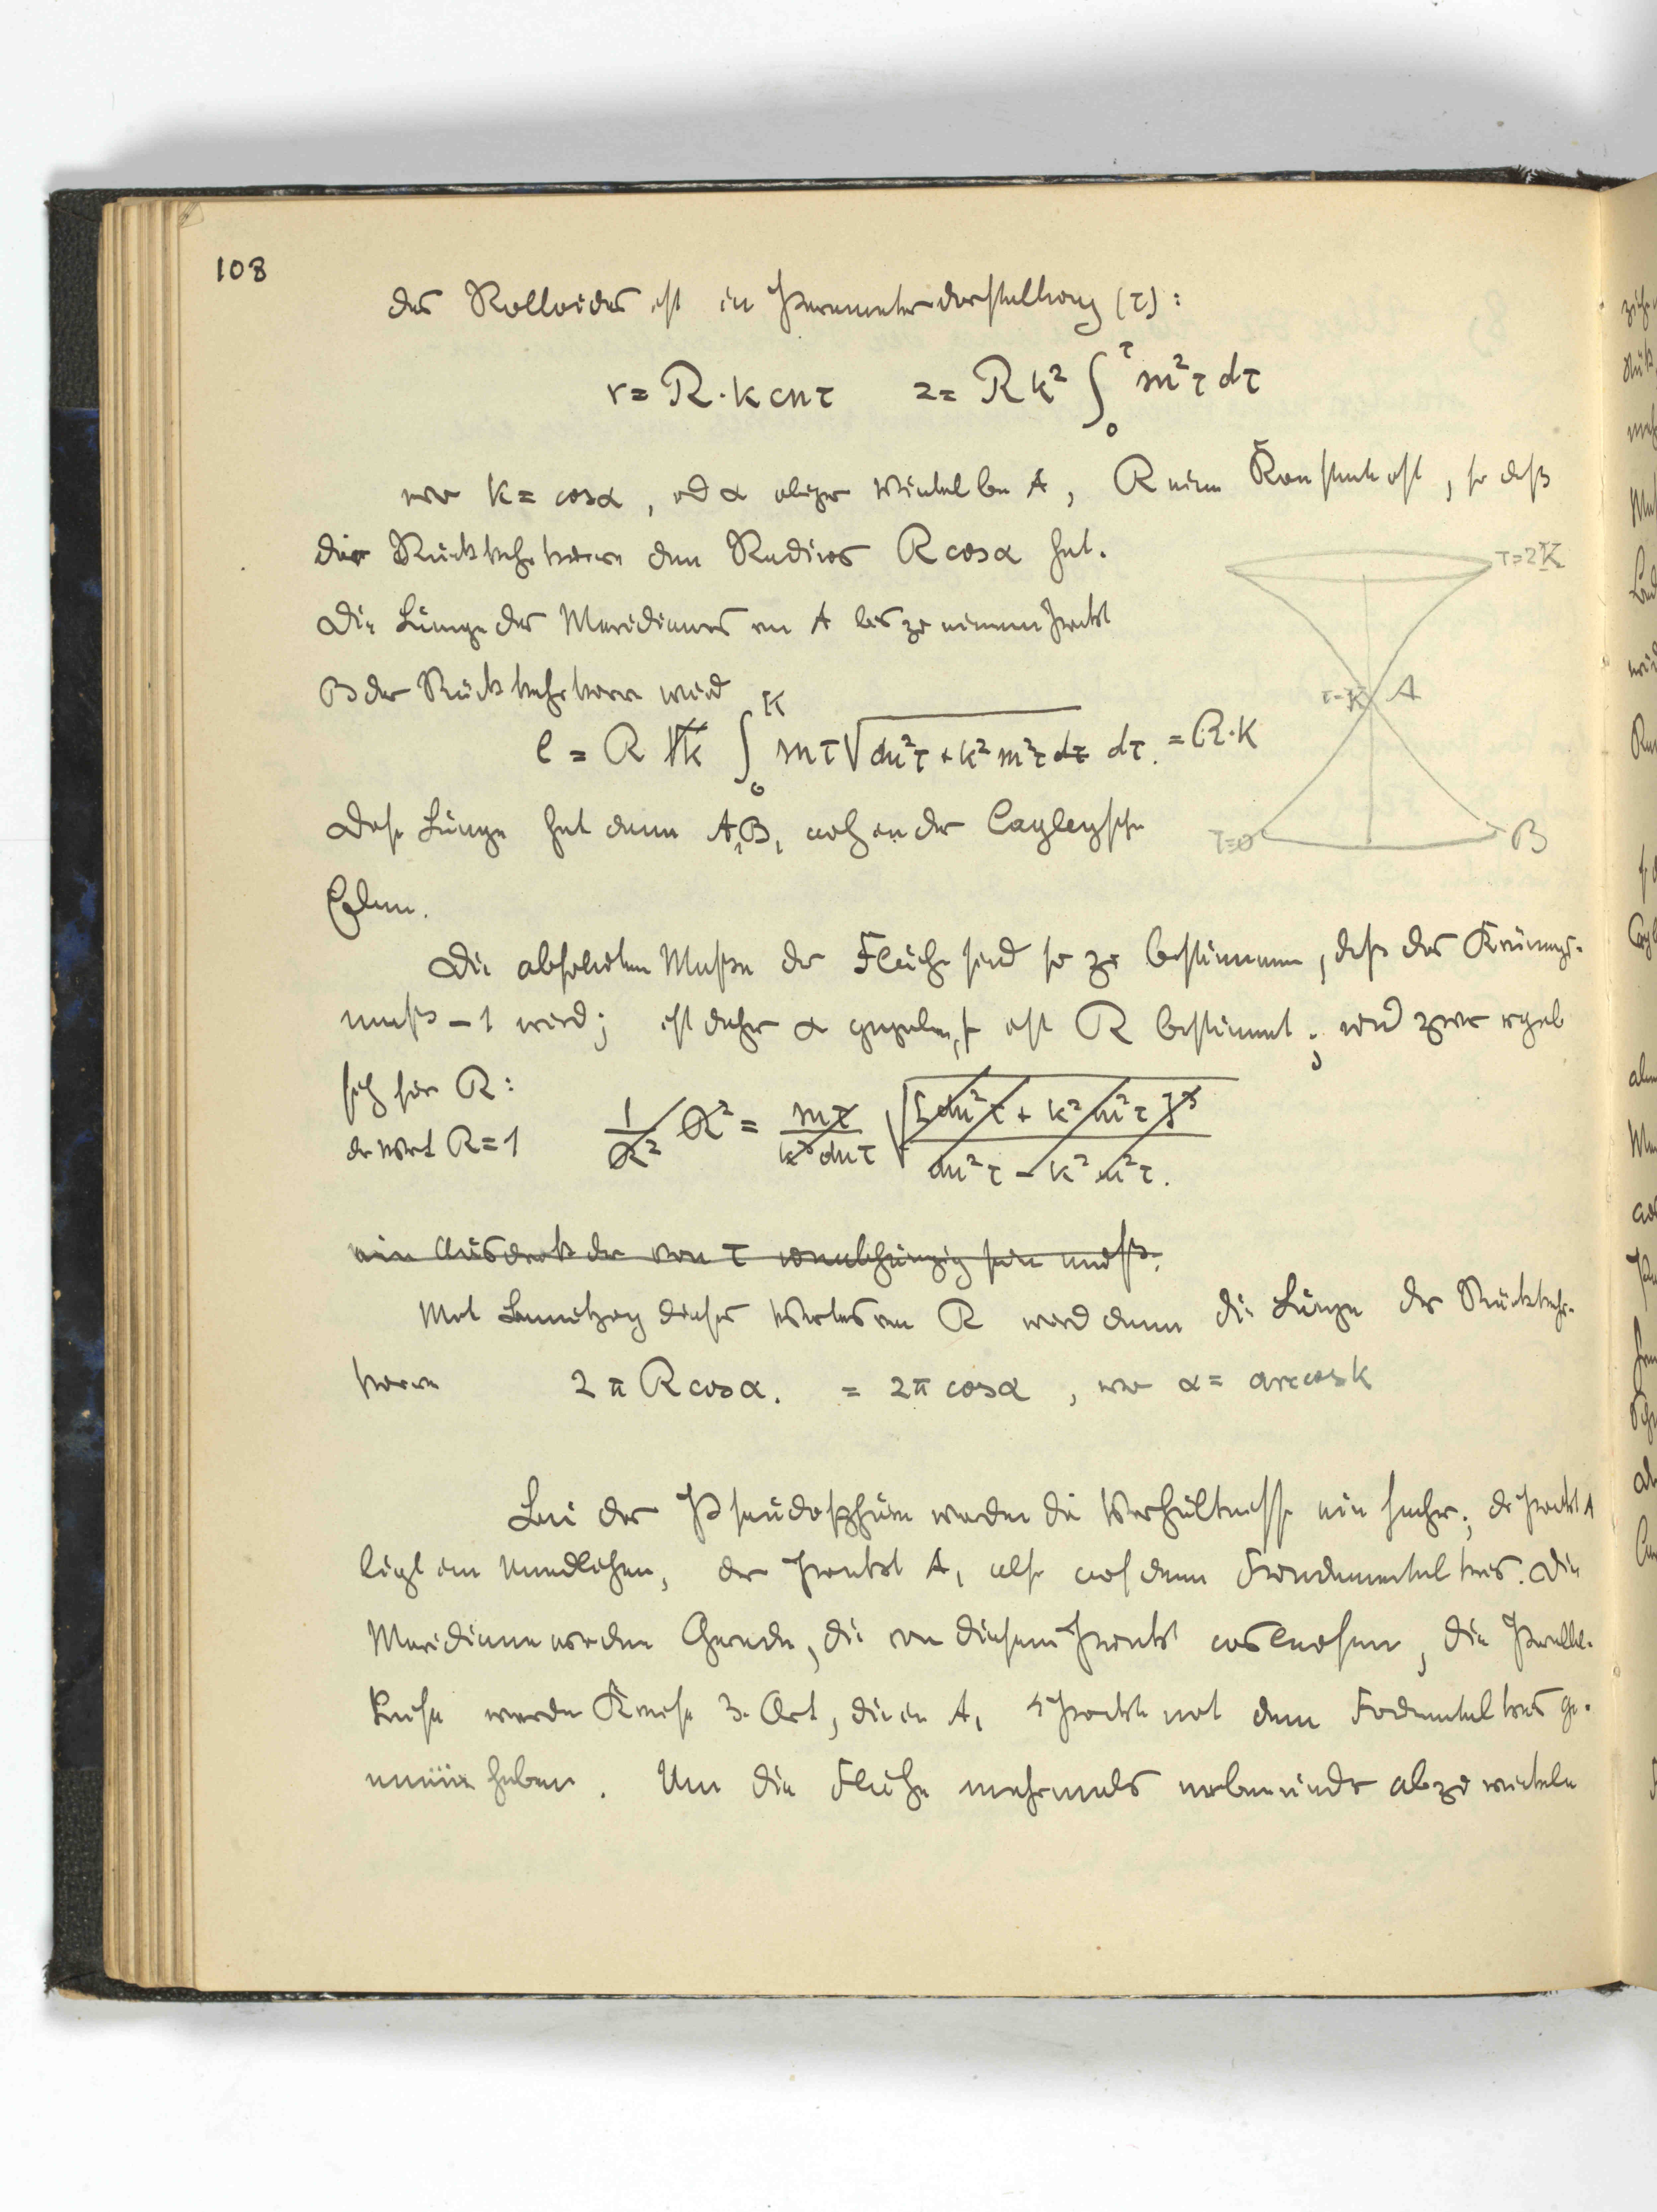 108
des Rolloides ist in Parameterdarstellung (τ):
r = R·k cn τ   z = R k² ∫₀^τ sn²τ dτ
wo k = cosα, und α obiger Winkel bei A, R eine Konstante ist, so daß
die Rückkehrkurve den Radius R cosα hat.
τ=2K
Die Länge des Meridianes von A bis zu einem Punkt
B der Rückkehrkurve wird
τ=K A
l = R k ∫₀^K sn τ √(dn²τ + k² sn²τ dτ) dτ. = R·K
Diese Länge hat dann A₁B₁ auf der Cayleyschen
τ=0 B
Ebene.
Die absoluten Maße der Fläche sind so zu bestimmen, daß das Krümmgs-
maß −1 wird; ist daher α gegeben, so ist R bestimmt; und zwar ergibt
sich für R:
der Wert R=1   1/R² R² = sn τ / k³ dn τ √([dn²τ + k² sn²τ]³ / dn²τ − k² sn²τ).
ein Ausdruck der von τ unabhängig sein muß.
Mit Benützung dieses Wertes von R wird dann die Länge der Rückkehr-
kurve   2π R cosα. = 2π cosα, wo α = arc cos k
Bei der Pseudosphäre werden die Verhältnisse einfacher; der Punkt A
liegt im Unendlichen, der Punkt A₁ also auf dem Fundamentalkreis. Die
Meridiane werden Gerade, die von diesem Punkt auslaufen, die Parallel-
kreise werden Kreise 3. Art, die in A₁ 4 Punkte mit dem Fundamentalkreis ge-
mein haben. Um die Fläche mehrmals nebeneinander abzuwickeln